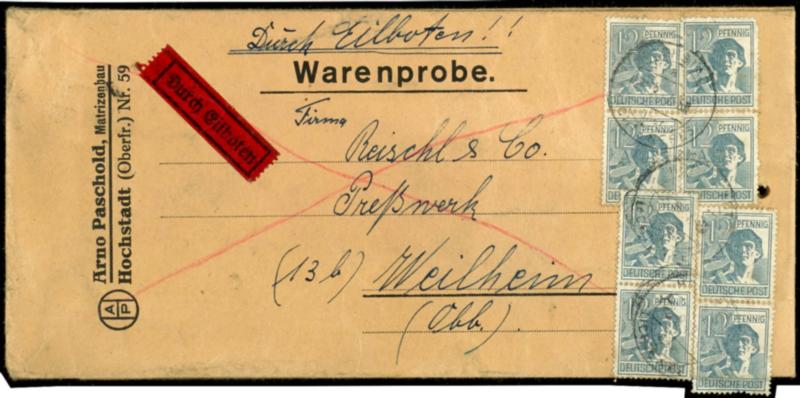 Durch Eilboten!!
Warenprobe.
Durch Eilboten
Arno Paschold, Matrizenbau
Hochstadt (Oberfr.) Nr. 59
A
P
Firma
Reischl & Co.
Preßwerk
(13b) Weilheim
(Obb.)
12 PFENNIG
DEUTSCHE POST
12 PFENNIG
DEUTSCHE POST
12 PFENNIG
DEUTSCHE POST
12 PFENNIG
DEUTSCHE POST
12 PFENNIG
DEUTSCHE POST
12 PFENNIG
DEUTSCHE POST
12 PFENNIG
DEUTSCHE POST
12 PFENNIG
DEUTSCHE POST